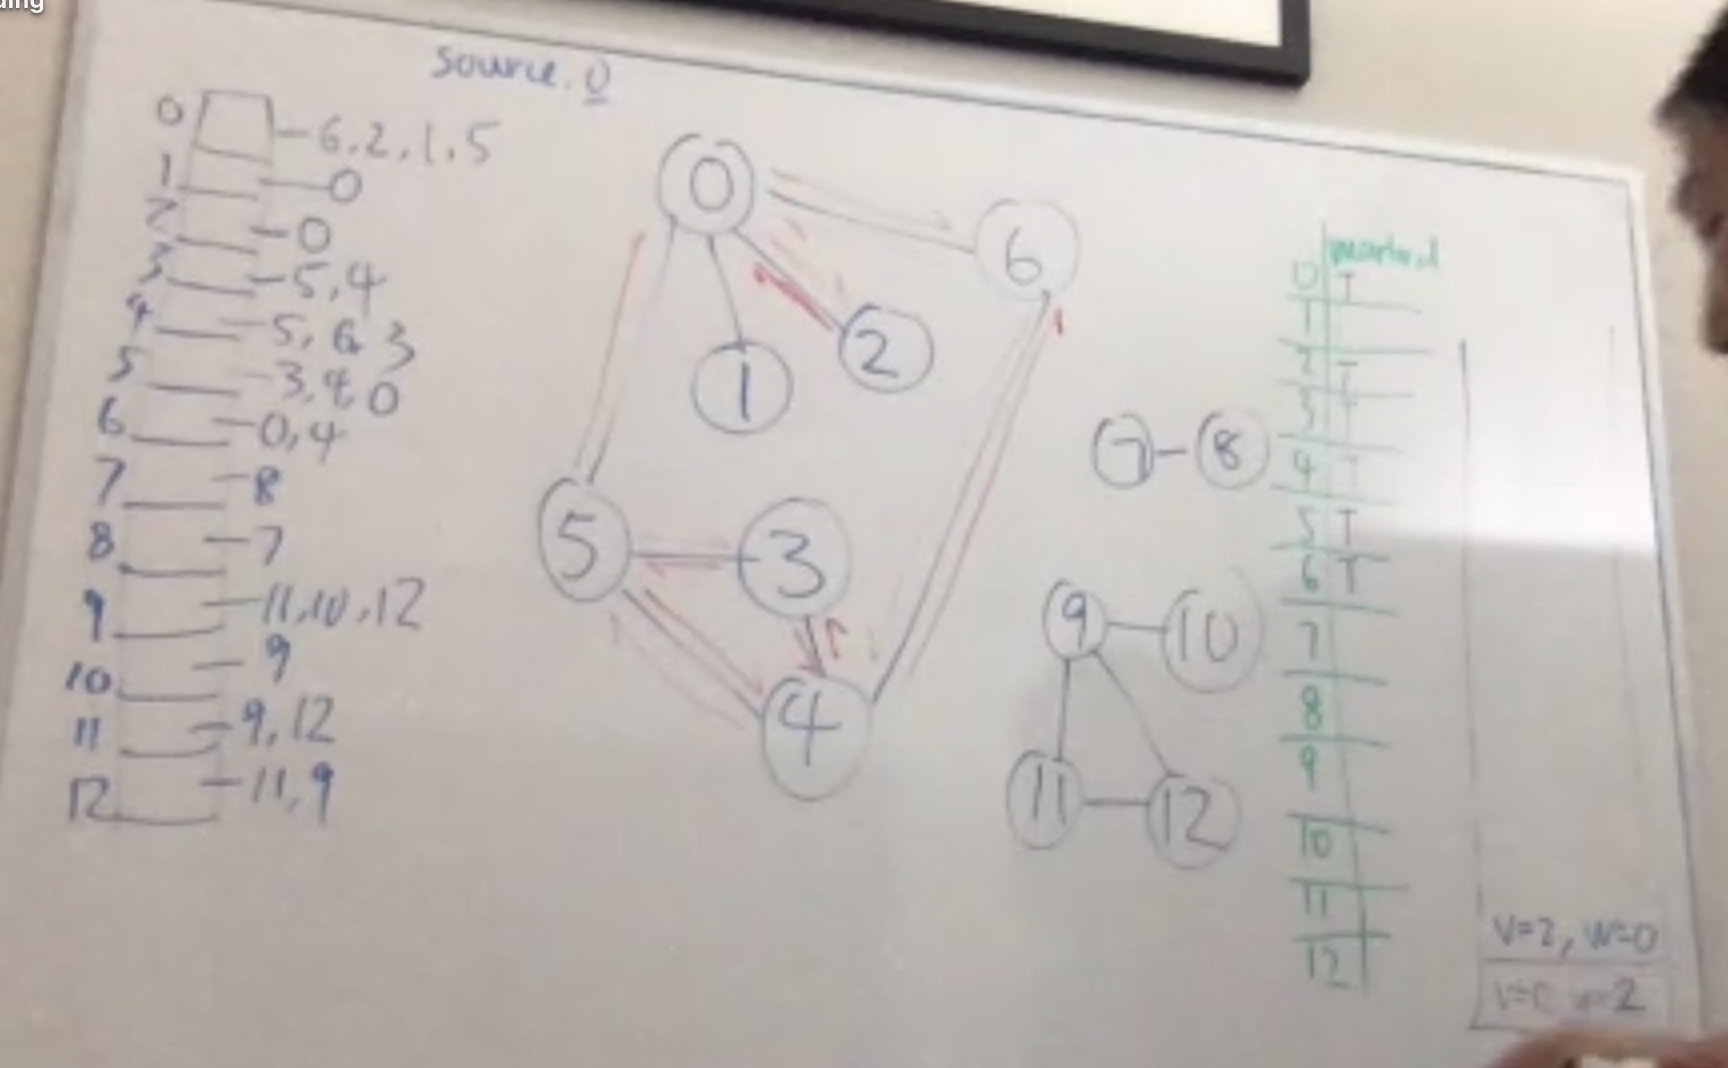 ding
Source. 0
0 6,2,1,5
1 0
2 0
3 5,4
4 5,6,3
5 3,4,0
6 0,4
7 8
8 7
9 11,10,12
10 9
11 9,12
12 11,9
0
6
1
2
5
3
4
7 8
9
10
11
12
marked
0 T
1
2 T
3 T
4 T
5 T
6 T
7
8
9
10
11
12
V=2, W=0
V=0 W=2